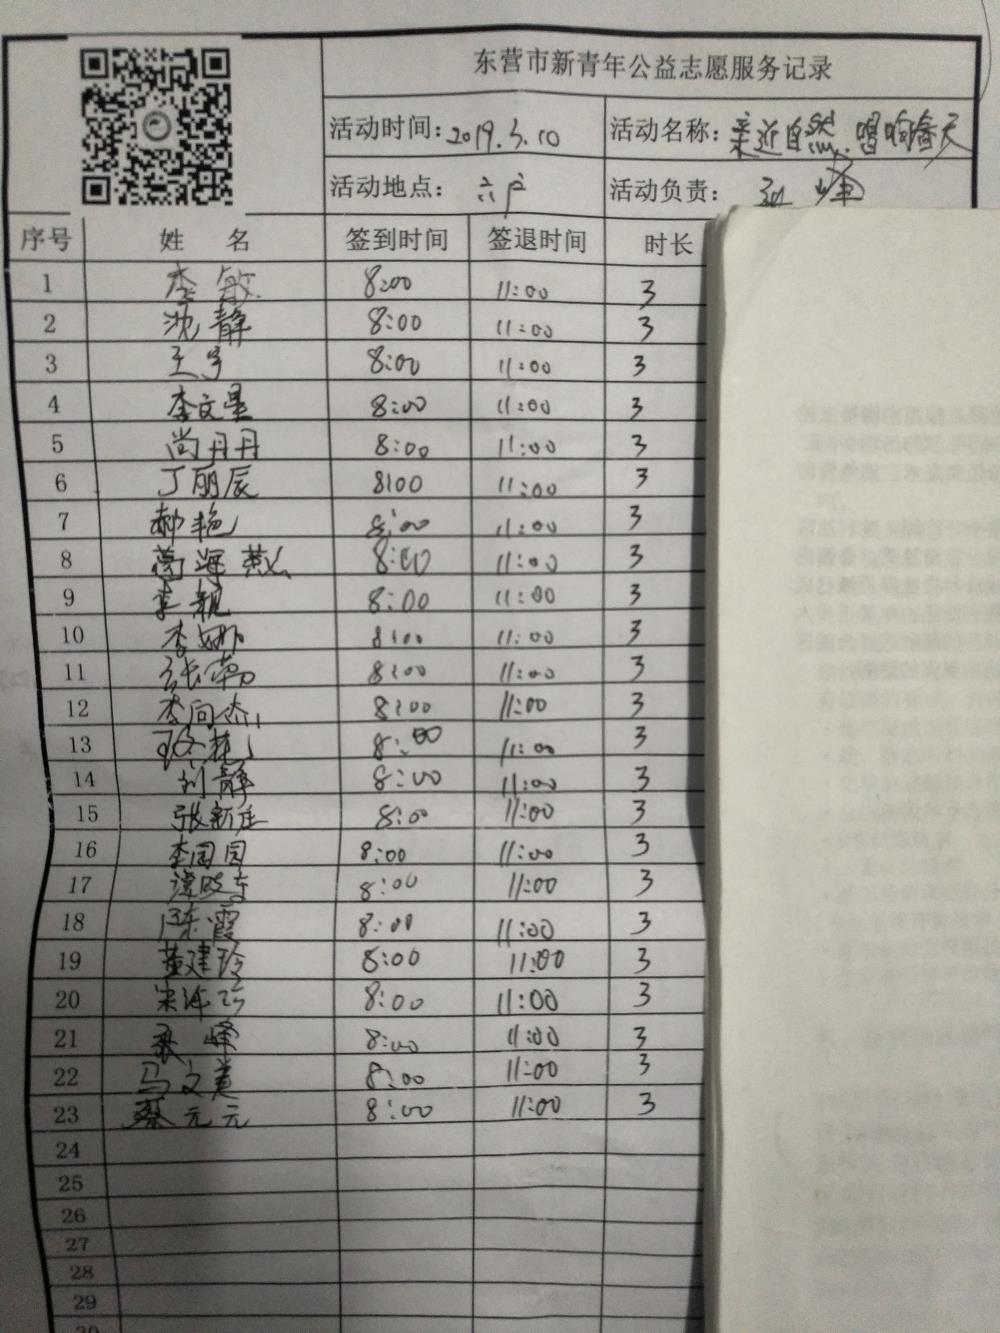 东营市新青年公益志愿服务记录
活动时间：2019.3.10 活动名称：亲近自然.唱响春天
活动地点：六户 活动负责：
序号 姓 名 签到时间 签退时间 时长
1 李敏 8:00 11:00 3
2 沈静 8:00 11:00 3
3 王宇 8:00 11:00 3
4 李文星 8:00 11:00 3
5 尚丹丹 8:00 11:00 3
6 丁丽辰 8:00 11:00 3
7 郝艳 8:00 11:00 3
8 葛海燕 8:00 11:00 3
9 李靓 8:00 11:00 3
10 李娜 8:00 11:00 3
11 张 8:00 11:00 3
12 李向杰 8:00 11:00 3
13 8:00 11:00 3
14 刘静 8:00 11:00 3
15 张新庄 8:00 11:00 3
16 李园园 8:00 11:00 3
17 8:00 11:00 3
18 陈霞 8:00 11:00 3
19 黄建玲 8:00 11:00 3
20 宋 8:00 11:00 3
21 8:00 11:00 3
22 马文美 8:00 11:00 3
23 綦元元 8:00 11:00 3
24
25
26
27
28
29
30